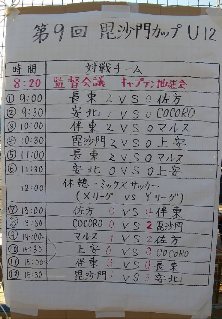 第9回 毘沙門カップ U12
時間 対戦チーム
8:20 監督会議 キャプテン
① 9:00 長東 2 VS 0 佐方
② 9:30 安北 VS 0 COCORO
③ 10:00 伴東 2 VS 0 マルス
④ 10:30 毘沙門 2 VS 0 上安
⑤ 11:00 長東 VS 0 マルス
⑥ 11:30 安北 0 VS 0 上安
12:00 休憩・ミックスサッカー
(Xリーグ VS Yリーグ)
⑦ 13:00 佐方 VS 伴東
⑧ 13:30 COCORO 0 VS 2 毘沙門
⑨ 14:00 マルス VS 2 佐方
⑩ 14:30 上安 VS 0 COCORO
⑪ 15:00 伴東 VS 長東
⑫ 15:30 毘沙門 VS 安北